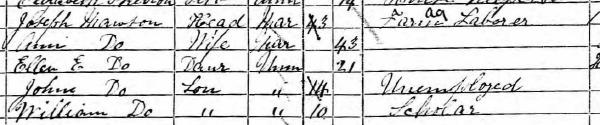 Joseph Mawson Head Mar 43 Farm Laborer
Ann Do Wife Mar 43
Ellen E. Do Daur Unm 21
John Do Son " 14 Unemployed
William Do " " 10 Scholar